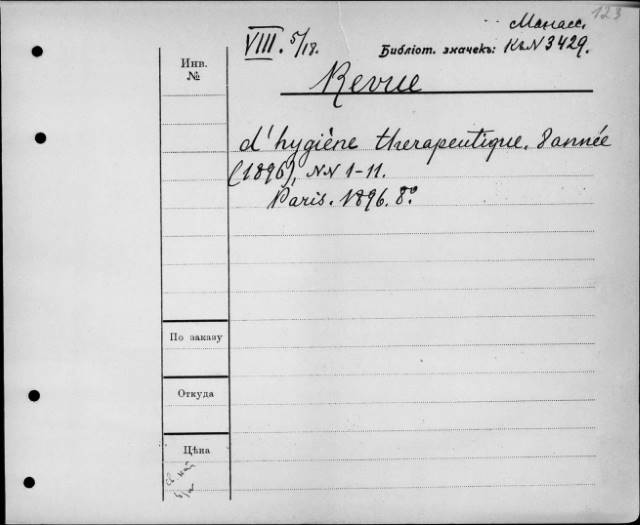 123
Манасс.
VIII. 5/18. Библіот. значекъ: К№ 3429.
Инв.
№
Revue
d'hygiène therapeutique. 8 année
(1896), NN 1-11.
Paris. 1896. 8º.
По заказу
Откуда
Цѣна